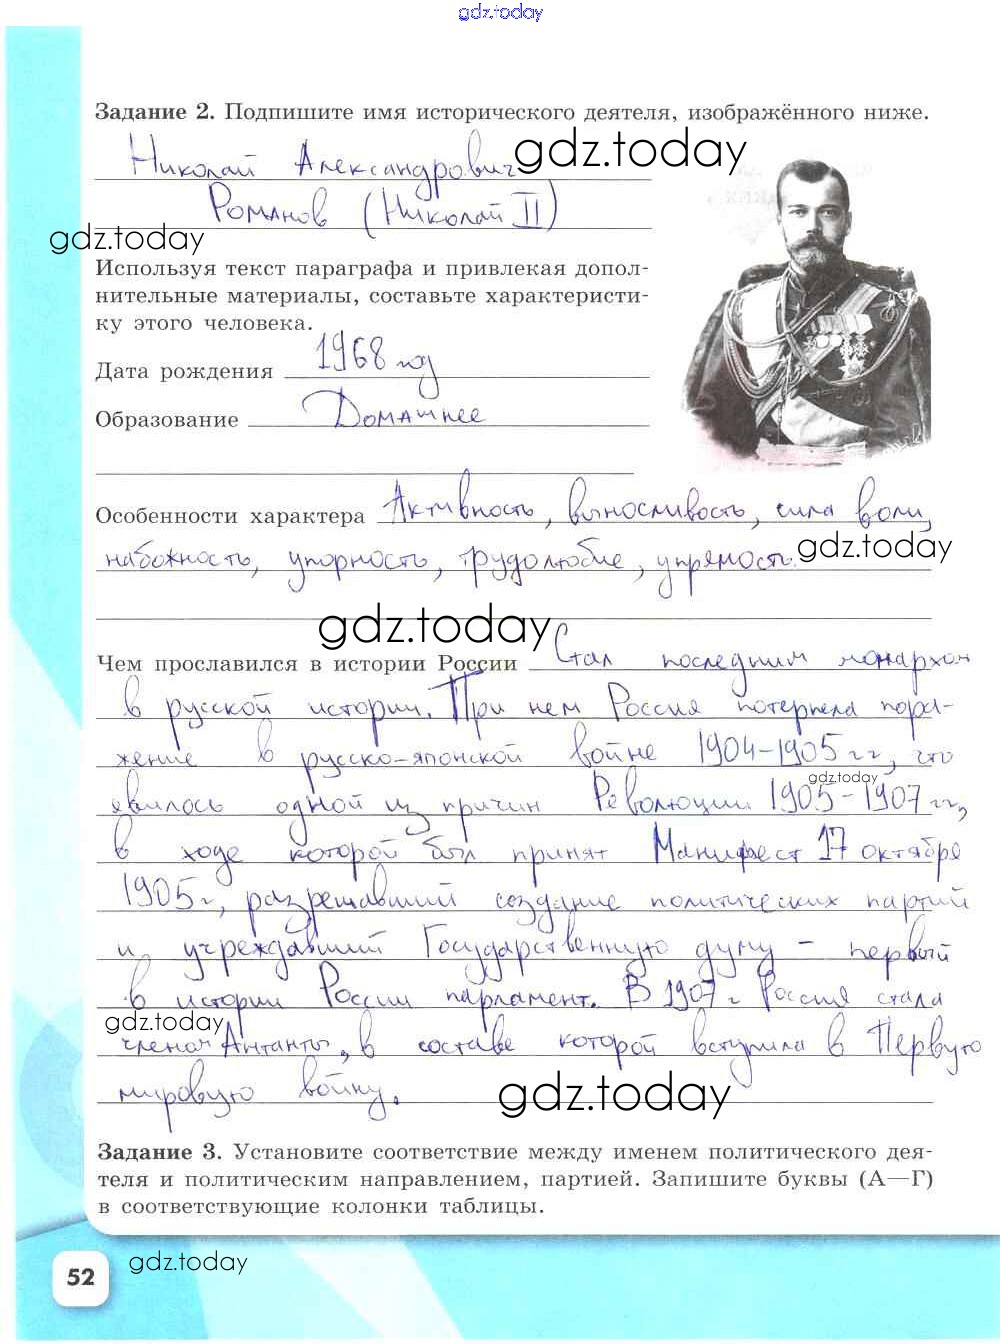 gdz.today
Задание 2. Подпишите имя исторического деятеля, изображённого ниже.
Николай Александрович
gdz.today
Романов (Николай II)
gdz.today
Используя текст параграфа и привлекая допол-
нительные материалы, составьте характеристи-
ку этого человека.
Дата рождения 1968 год
Образование Домашнее
Особенности характера Активность, выносливость, сила воли,
gdz.today
набожность, упорность, трудолюбие, упрямость.
gdz.today
Чем прославился в истории России Стал последним монархом
в русской истории. При нем Россия потерпела пора-
жение в русско-японской войне 1904-1905 гг, что
gdz.today
явилось одной из причин Революции 1905-1907 гг,
в ходе которой был принят Манифест 17 октября
1905 г, разрешавший создание политических партий
и учреждавший Государственную думу - первый
в истории России парламент. В 1907 г Россия стала
gdz.today
членом Антанты, в составе которой вступила в Первую
мировую войну.
gdz.today
Задание 3. Установите соответствие между именем политического дея-
теля и политическим направлением, партией. Запишите буквы (А—Г)
в соответствующие колонки таблицы.
52
gdz.today